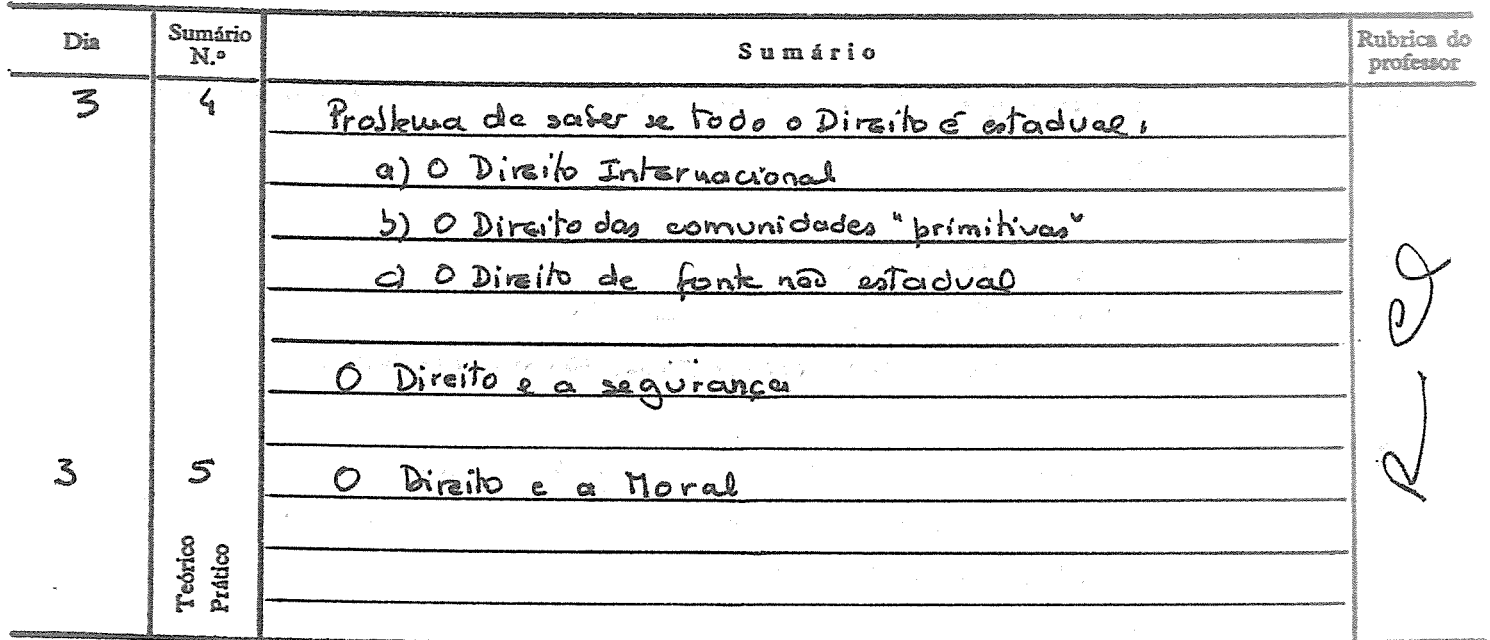 Dia Sumário N.º Sumário Rubrica do professor
3 4 Problema de saber se todo o Direito é estadual:
a) O Direito Internacional
b) O Direito das comunidades "primitivas"
c) O Direito de fonte não estadual
O Direito e a segurança
3 5 O Direito e a Moral
Teórico
Prático